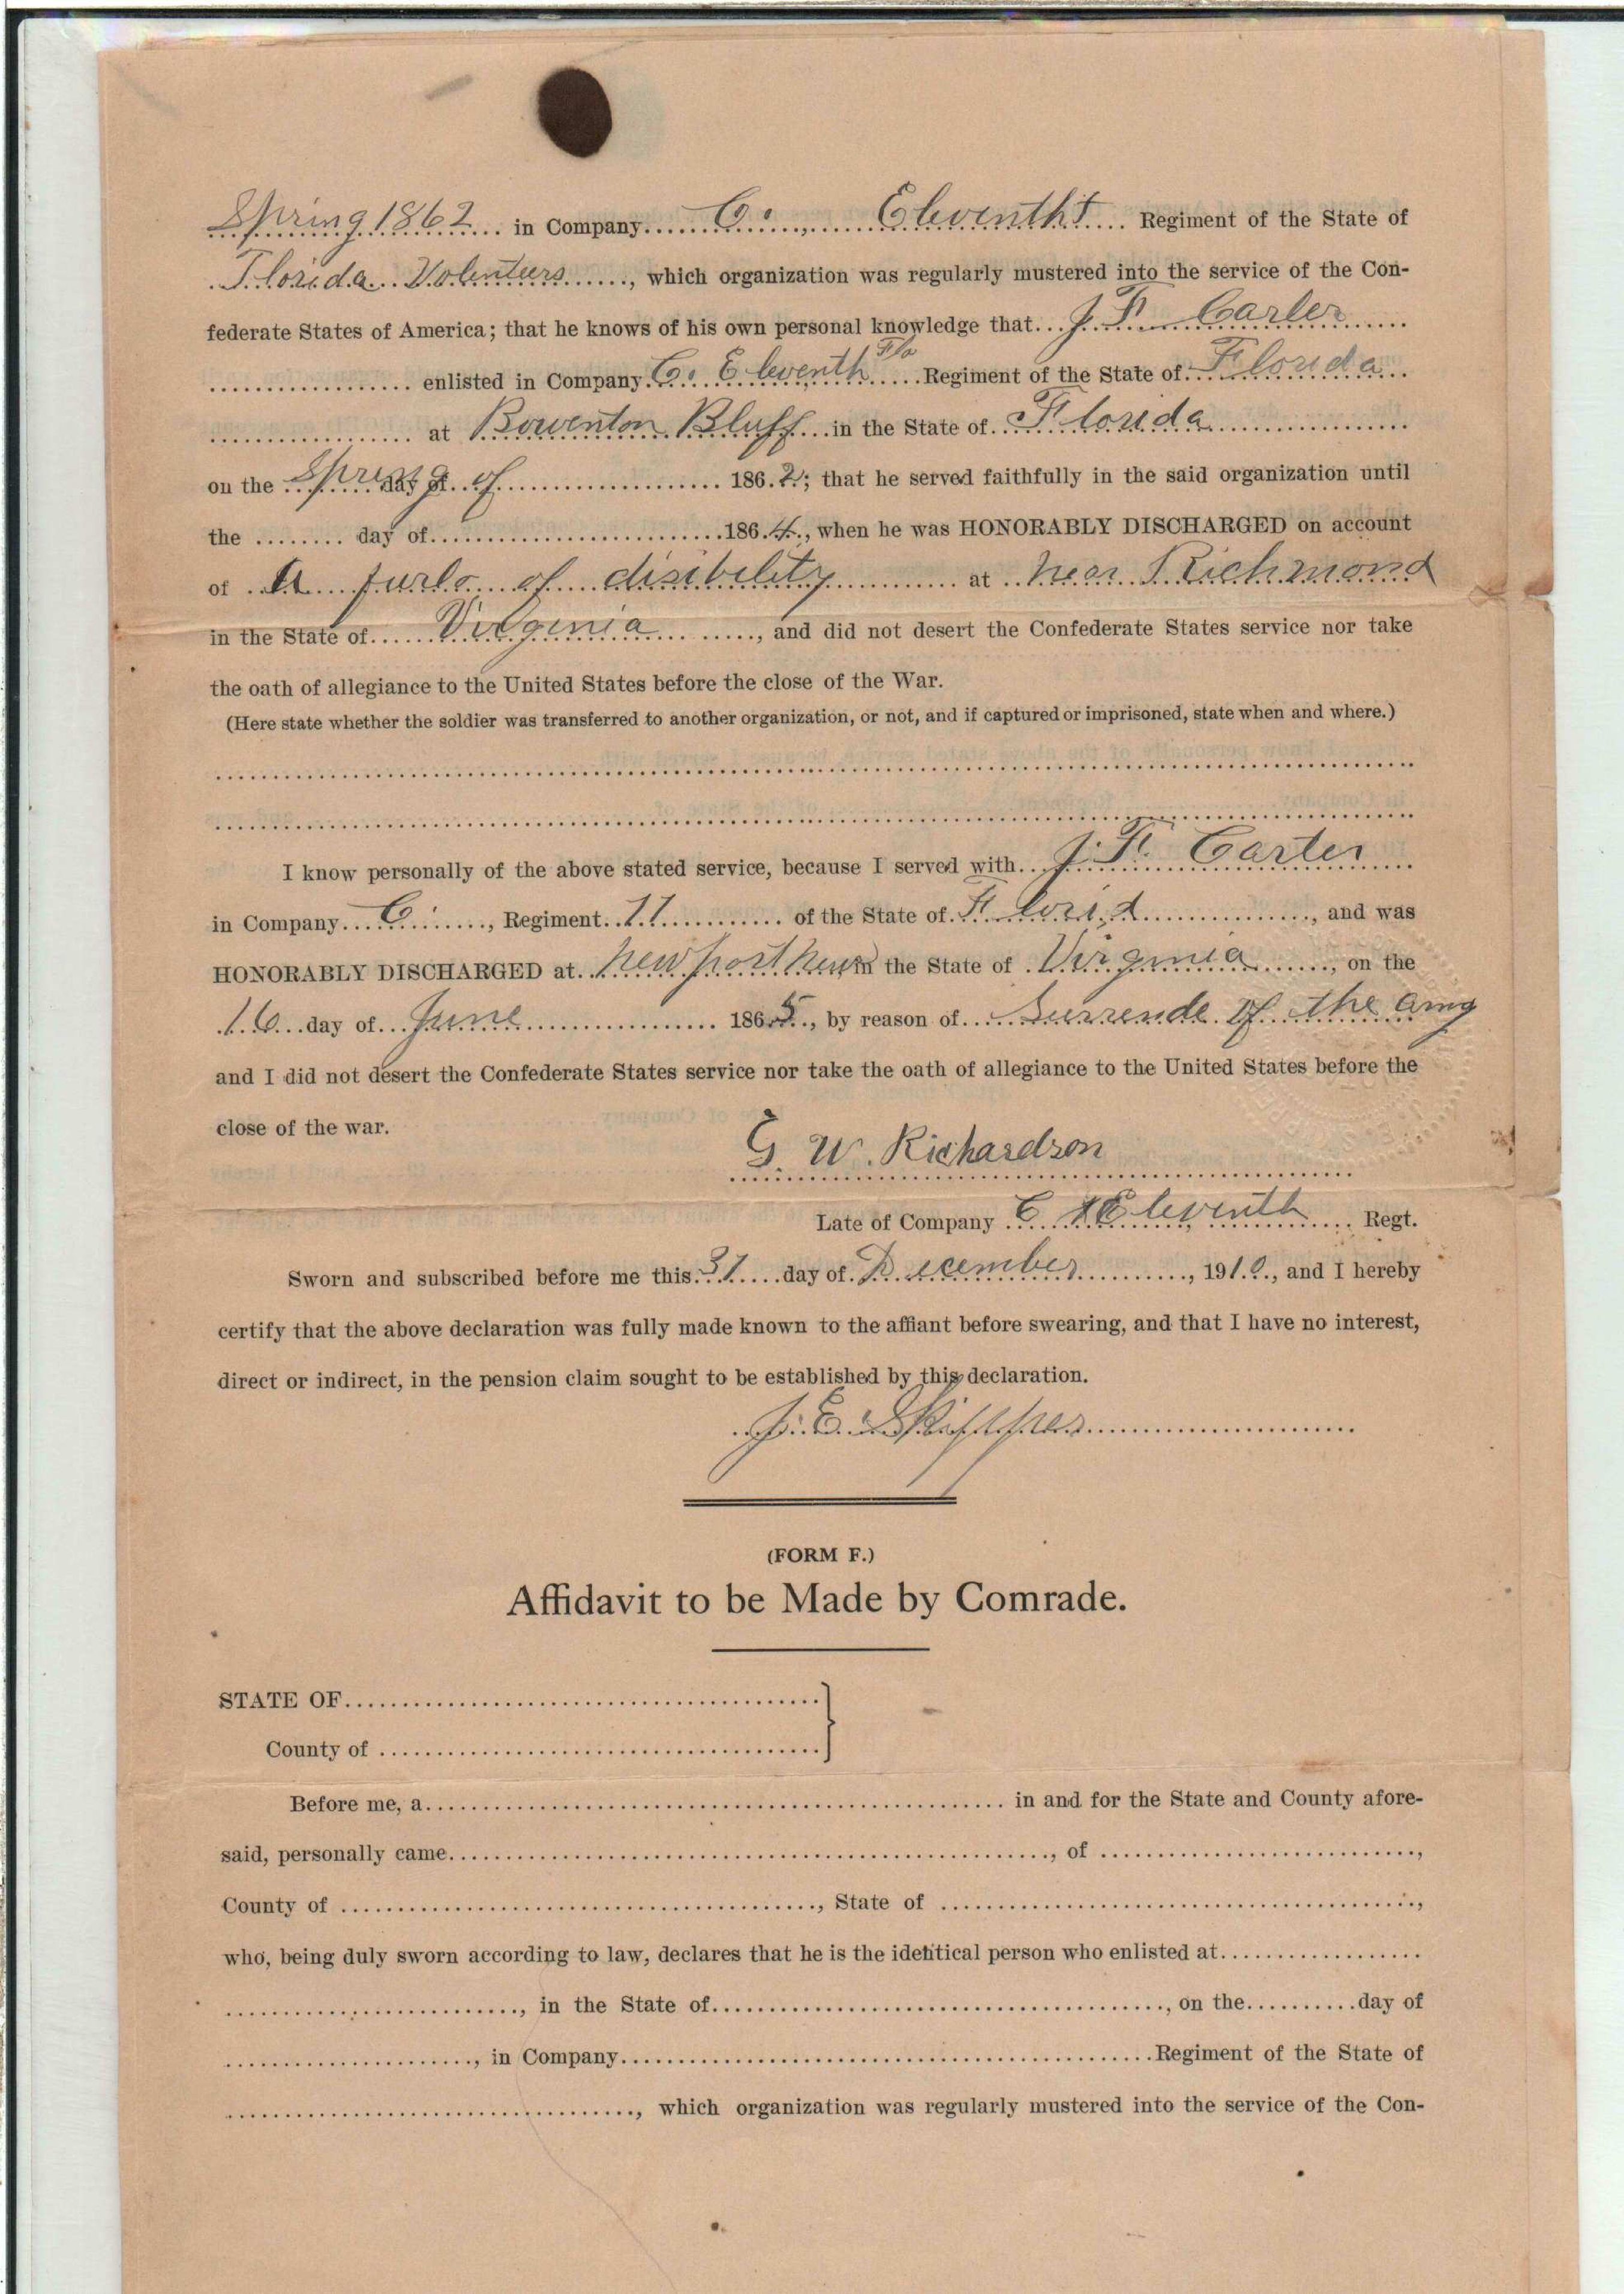 Spring 1862 in Company C. Eleventh Regiment of the State of
Florida Volenteers, which organization was regularly mustered into the service of the Con-
federate States of America; that he knows of his own personal knowledge that J. F. Carter
enlisted in Company C. Eleventh Fla Regiment of the State of Florida
at Bowenton Bluff in the State of Florida
on the Spring of day of 1862; that he served faithfully in the said organization until
the day of 1864, when he was HONORABLY DISCHARGED on account
of A furlo of disibelity at near Richmond
in the State of Virginia, and did not desert the Confederate States service nor take
the oath of allegiance to the United States before the close of the War.
(Here state whether the soldier was transferred to another organization, or not, and if captured or imprisoned, state when and where.)
I know personally of the above stated service, because I served with J. F. Carter
in Company C., Regiment 11 of the State of, and was
HONORABLY DISCHARGED at Newport News in the State of Virginia, on the
16 day of June 1865, by reason of Surrende of the army
and I did not desert the Confederate States service nor take the oath of allegiance to the United States before the
close of the war.
G. W. Richardson
Late of Company C Eleventh Regt.
Sworn and subscribed before me this 31 day of December, 1910, and I hereby
certify that the above declaration was fully made known to the affiant before swearing, and that I have no interest,
direct or indirect, in the pension claim sought to be established by this declaration.
J. E. Skipper
(FORM F.)
Affidavit to be Made by Comrade.
STATE OF
County of
Before me, a in and for the State and County afore-
said, personally came, of,
County of, State of,
who, being duly sworn according to law, declares that he is the identical person who enlisted at
, in the State of, on the day of
, in Company Regiment of the State of
, which organization was regularly mustered into the service of the Con-